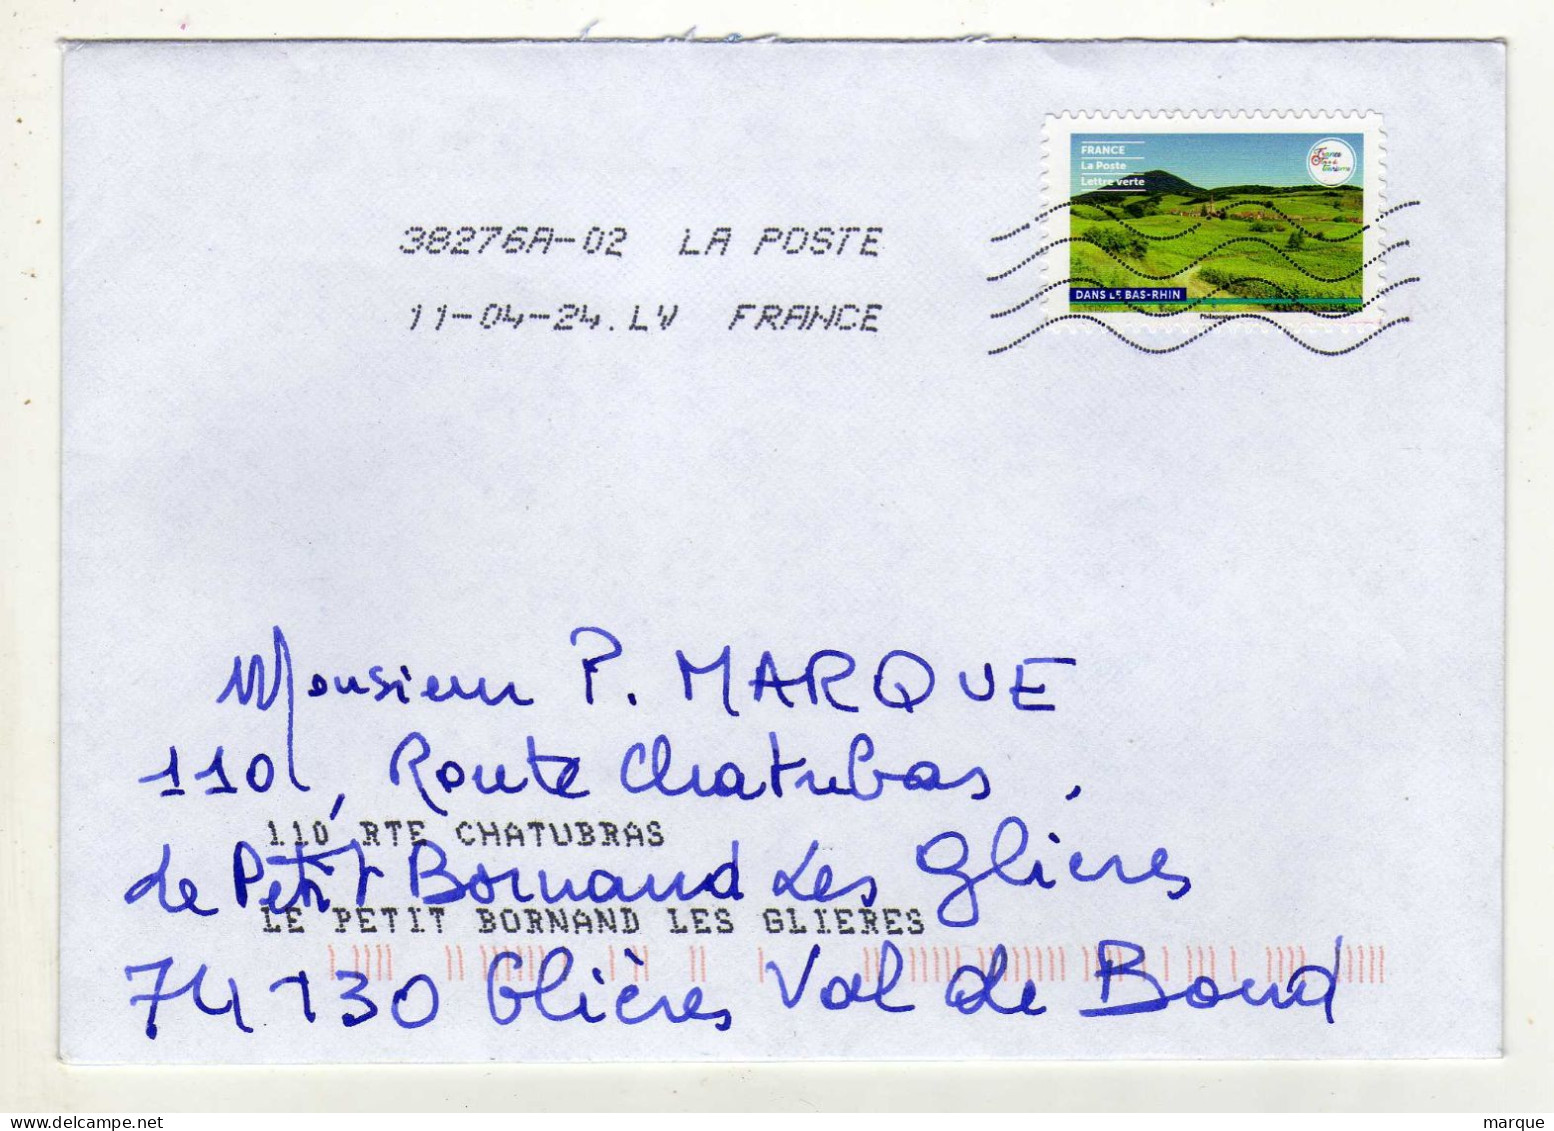 FRANCE
La Poste
Lettre verte
38276A-02 LA POSTE
11-04-24.LV FRANCE
DANS LE BAS-RHIN
Monsieur P. MARQUE
110, Route Chatubras,
110 RTE CHATUBRAS
de Petit Bornand Les Glieres
LE PETIT BORNAND LES GLIERES
74130 Glières Val de Bornd
delcampe.net
marque